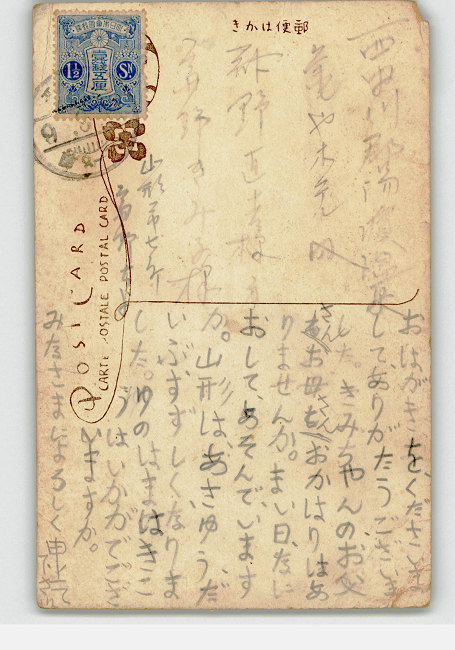 郵便はかき
1½ Sn
POST CARD
CARTE POSTALE POSTAL CARD
西田川郡湯濱温
亀や木亀内
野直吉様
野きみ子様
山形市七
おはがきを、くださいま
してありがたうございま
した。きみちゃんのお父
さんお母さんおかはりはあ
りませんか。まい日、なに
おして、あそんでいます
か。山形は、あさゆうだ
いぶすずしくなりま
した。ゆのはまはきこ
うはいかがでござ
いますか。
みなさまによろしく